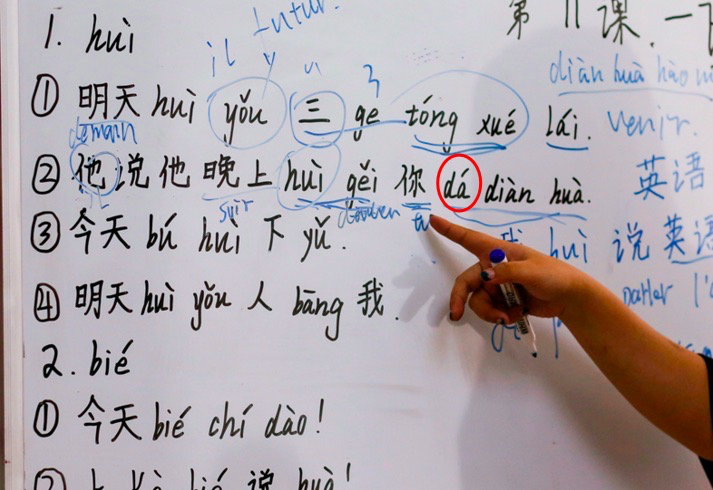 第 11 课. 一下
1. huì
il futur.
diàn huà hào
① 明天 huì yǒu 三 ge tóng xué lái. venir.
demain
② 他说他晚上 huì gěi 你 dá diàn huà. 英语
soir tu
③ 今天 bú huì 下 yǔ. huì 说英语
④ 明天 huì yǒu 人 bāng 我. parler l'
2. bié
① 今天 bié chí dào!
② 上 kè bié 说 huà!